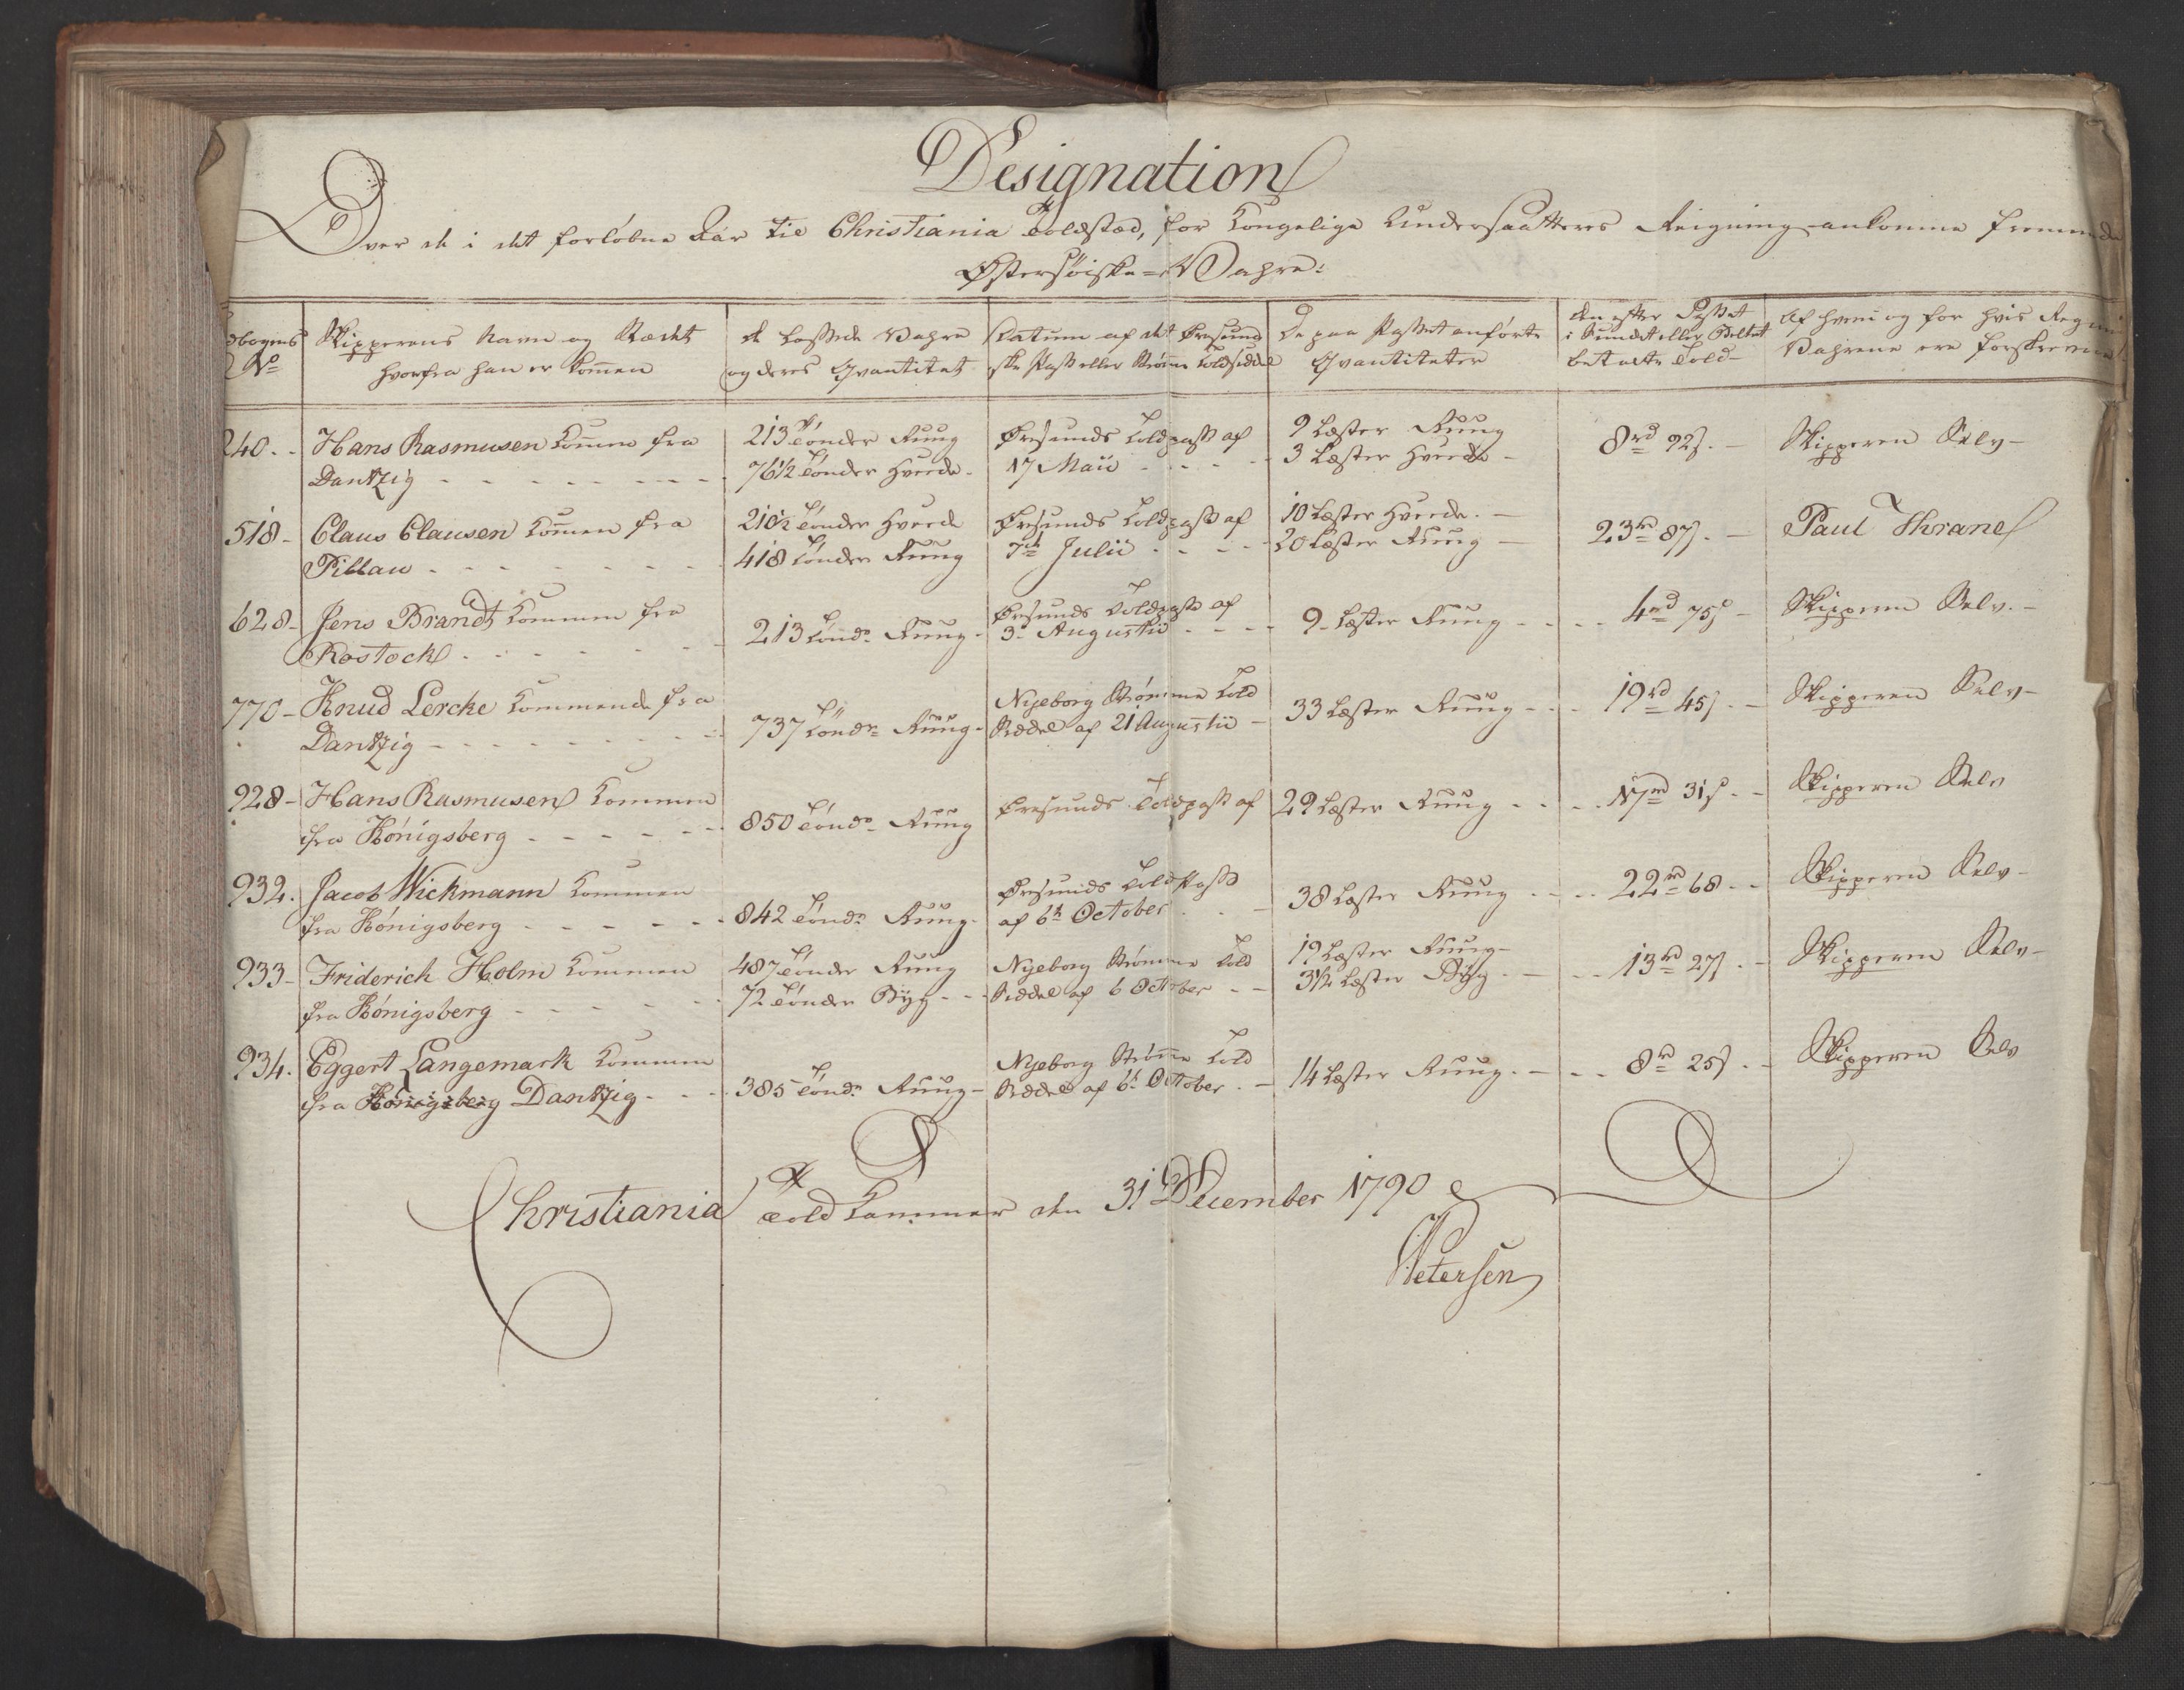 Designation
Over de i det forløbne Aar til Christiania Toldsted, for Kongelige Undersaatteres Reigning ankomne fremmede
Østersøiske Vahre:
dbogens
No
Skipperens Navn og Stædet
hvorfra han er kommen
de lossede Vahre
og deres Qvantitet
Datum af det Øresund
ske Pass eller Strømme Toldseddel
De paa Passet anførte
Qvantiteter
den efter Passet
i Sundet eller Beltet
betalte Told
Af hvem og for hvis Regni
Vahrene ere forskrevne
240. Hans Rasmusen kommen fra
Dantzig
213 Tønder Rug
76½ Tønder Hvede
Øresunds Toldpass af
17 Maii
9 Læster Rug
3 Læster Hvede
8 rd 92 s.
Skipperen Selv
518 Claus Clausen kommen fra
Pillau
210½ Tønder Hvede
418 Tønder Rug
Øresunds Toldpass af
7de Julii
10 Læster Hvede.
20 Læster Rug
23 rd 87 s.
Paul Thrane
628 Jens Brandt kommen fra
Rostock
213 Tøndr Rug
Øresunds Toldpass af
3. Augustii
9 Læster Rug
4 rd 75 s
Skipperen Selv.
770 Knud Lercke kommende fra
Dantzig
737 Tøndr Rug
Nyeborg Strømme Told
Seddel af 21 Augustii
33 Læster Rug
19 rd 45 s
Skipperen Selv
928 Hans Rasmusen kommen
fra Königsberg
850 Tøndr Rug
Øresunds Toldpass af
29 Læster Rug
17 rd 31 s.
Skipperen Selv
932. Jacob Wickmann kommen
fra Königsberg
842 Tøndr Rug
Øresunds Toldpass
af 6te October
38 Læster Rug
22 rd 68
Skipperen Selv
933 Friderich Holm kommen
fra Königsberg
487 Tønder Rug
72 Tønder Byg
Nyeborg Strømme Told
Seddel af 6 October
19 Læster Rug
3½ Læster Byg
13 rd 27 s
Skipperen Selv
934. Eggert Langemark kommen
fra Königsberg Dantzig
385 Tøndr Rug
Nyeborg Strømme Told
Seddel af 6te October
14 Læster Rug.
8 rd 25 s
Skipperen Selv
Christiania Told Kammer den 31 December 1790
Petersen